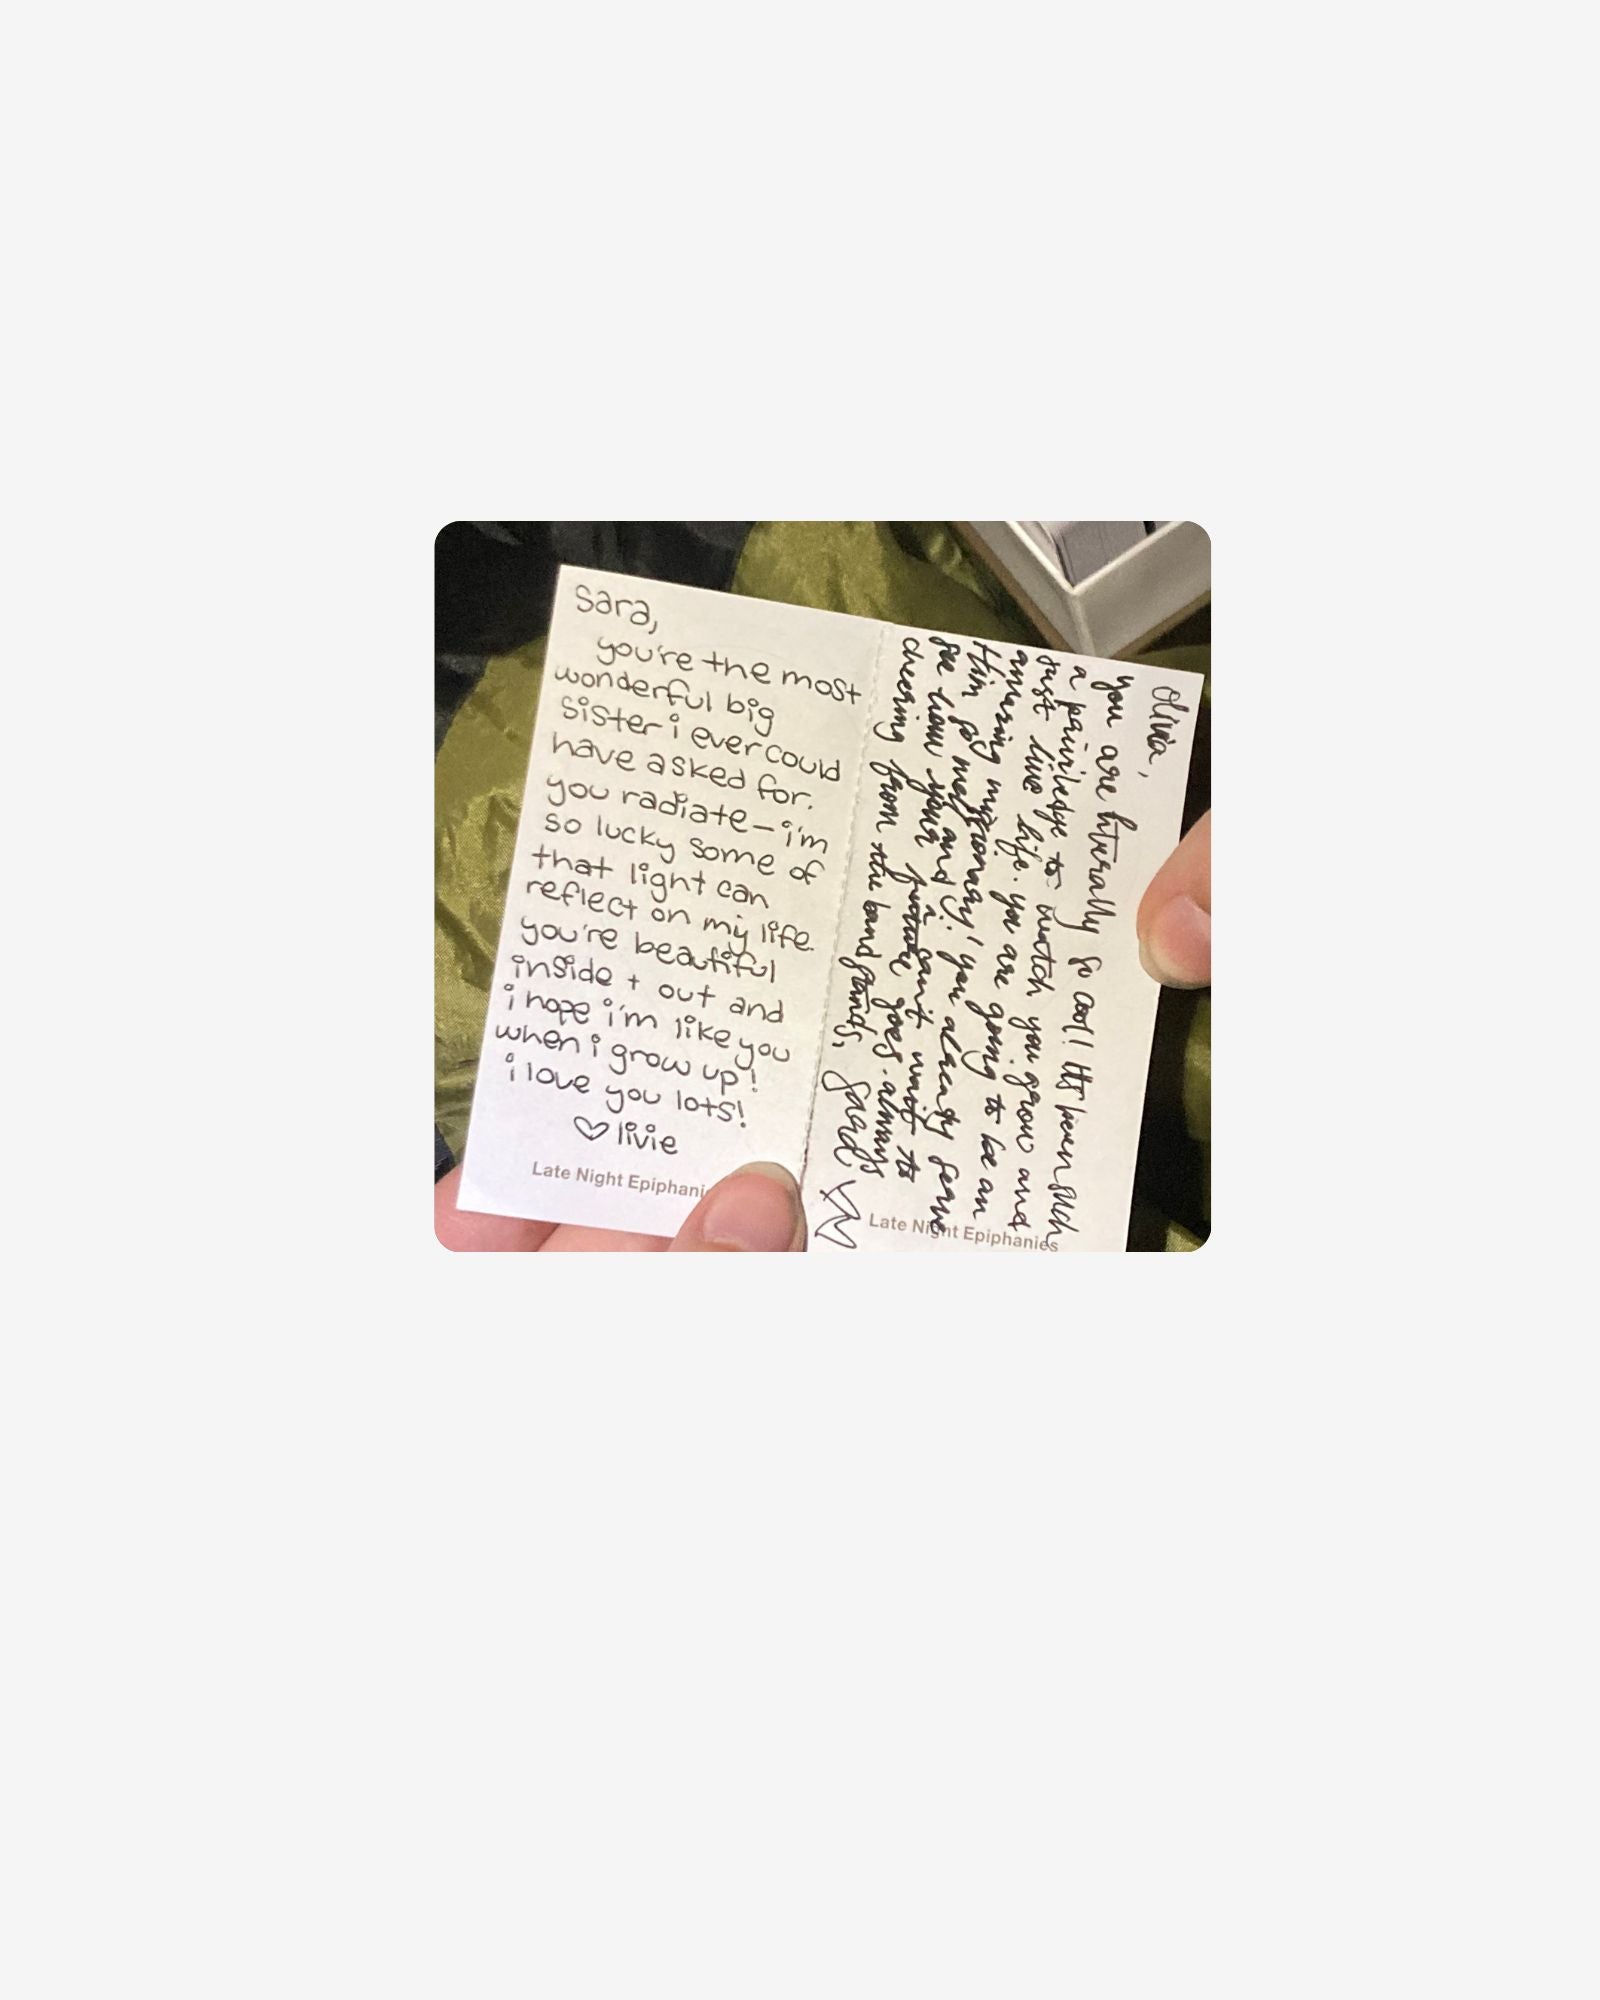 sara,
you're the most
wonderful big
sister i ever could
have asked for.
you radiate - i'm
so lucky some of
that light can
reflect on my life.
you're beautiful
inside + out and
i hope i'm like you
when i grow up!
i love you lots!
♡ livie
Late Night Epiphani
olivia,
you are literally so cool! It's been such
a priviledge to watch you grow and
just live life. you are going to be an
amazing missionary! you already serve
Him so and i can't wait to
see how your future goes. always
cheering from the band stands,
sara
Late Night Epiphanies